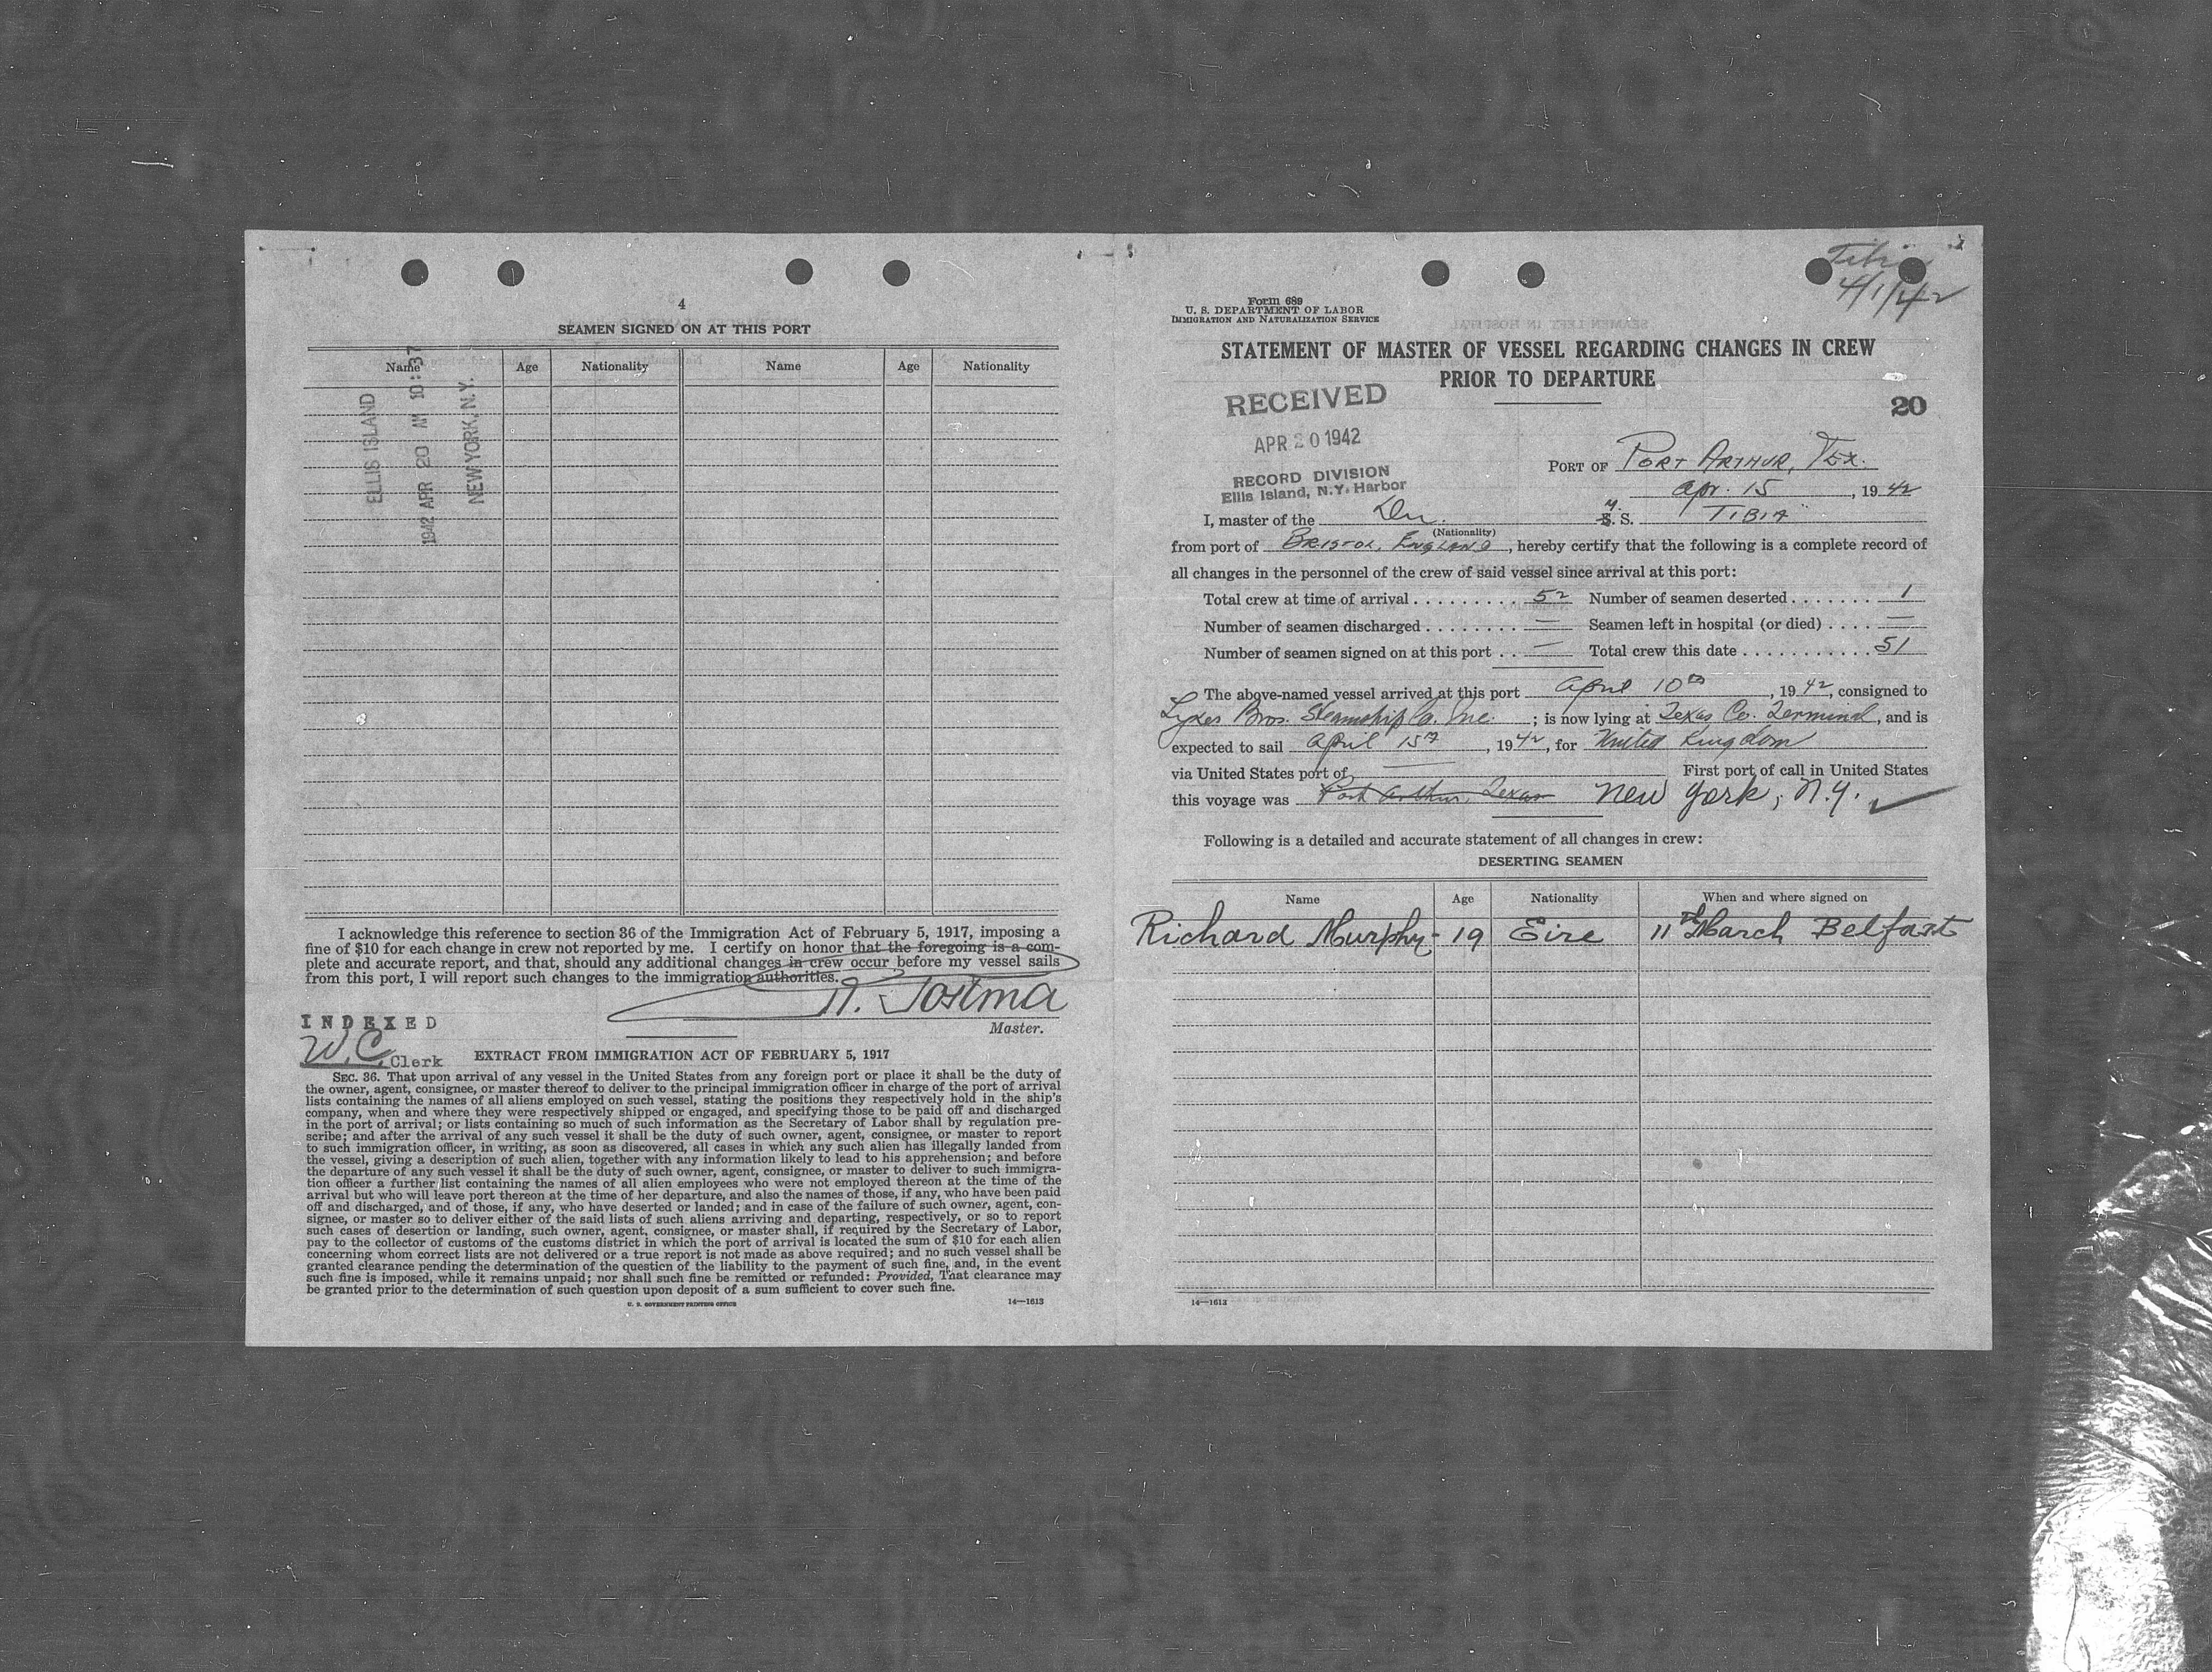 4
SEAMEN SIGNED ON AT THIS PORT
Name Age Nationality Name Age Nationality
ELLIS ISLAND
1942 APR 20 AM 10:37
NEW YORK, N.Y.
I acknowledge this reference to section 36 of the Immigration Act of February 5, 1917, imposing a
fine of $10 for each change in crew not reported by me. I certify on honor that the foregoing is a com-
plete and accurate report, and that, should any additional changes in crew occur before my vessel sails
from this port, I will report such changes to the immigration authorities.
Master.
INDEXED
W.C. Clerk
EXTRACT FROM IMMIGRATION ACT OF FEBRUARY 5, 1917
SEC. 36. That upon arrival of any vessel in the United States from any foreign port or place it shall be the duty of
the owner, agent, consignee, or master thereof to deliver to the principal immigration officer in charge of the port of arrival
lists containing the names of all aliens employed on such vessel, stating the positions they respectively hold in the ship's
company, when and where they were respectively shipped or engaged, and specifying those to be paid off and discharged
in the port of arrival; or lists containing so much of such information as the Secretary of Labor shall by regulation pre-
scribe; and after the arrival of any such vessel it shall be the duty of such owner, agent, consignee, or master to report
to such immigration officer, in writing, as soon as discovered, all cases in which any such alien has illegally landed from
the vessel, giving a description of such alien, together with any information likely to lead to his apprehension; and before
the departure of any such vessel it shall be the duty of such owner, agent, consignee, or master to deliver to such immigra-
tion officer a further list containing the names of all alien employees who were not employed thereon at the time of the
arrival but who will leave port thereon at the time of her departure, and also the names of those, if any, who have been paid
off and discharged, and of those, if any, who have deserted or landed; and in case of the failure of such owner, agent, con-
signee, or master so to deliver either of the said lists of such aliens arriving and departing, respectively, or so to report
such cases of desertion or landing, such owner, agent, consignee, or master shall, if required by the Secretary of Labor,
pay to the collector of customs of the customs district in which the port of arrival is located the sum of $10 for each alien
concerning whom correct lists are not delivered or a true report is not made as above required; and no such vessel shall be
granted clearance pending the determination of the question of the liability to the payment of such fine, and, in the event
such fine is imposed, while it remains unpaid; nor shall such fine be remitted or refunded: Provided, That clearance may
be granted prior to the determination of such question upon deposit of a sum sufficient to cover such fine.
U. S. GOVERNMENT PRINTING OFFICE 14—1613
Tibia
4/1/42
Form 689
U. S. DEPARTMENT OF LABOR
IMMIGRATION AND NATURALIZATION SERVICE
STATEMENT OF MASTER OF VESSEL REGARDING CHANGES IN CREW
PRIOR TO DEPARTURE
RECEIVED
APR 20 1942
RECORD DIVISION
Ellis Island, N.Y. Harbor
20
PORT OF PORT ARTHUR, TEX.
Apr. 15, 1942
I, master of the Du. M. S. S. TIBIA
(Nationality)
from port of BRISTOL, ENGLAND, hereby certify that the following is a complete record of
all changes in the personnel of the crew of said vessel since arrival at this port:
Total crew at time of arrival . . . . . . . . . 52 Number of seamen deserted . . . . . . . 1
Number of seamen discharged . . . . . . . . — Seamen left in hospital (or died) . . . . —
Number of seamen signed on at this port . . — Total crew this date . . . . . . . . . . . 51
The above-named vessel arrived at this port April 10th, 1942, consigned to
Lykes Bros. Steamship Co. Inc. ; is now lying at Texas Co. Terminal, and is
expected to sail April 15th, 1942, for United Kingdom
via United States port of — First port of call in United States
this voyage was Port Arthur, Texas New York, N.Y. ✓
Following is a detailed and accurate statement of all changes in crew:
DESERTING SEAMEN
Name Age Nationality When and where signed on
Richard Murphy - 19 Eire 11th March Belfast
14—1613